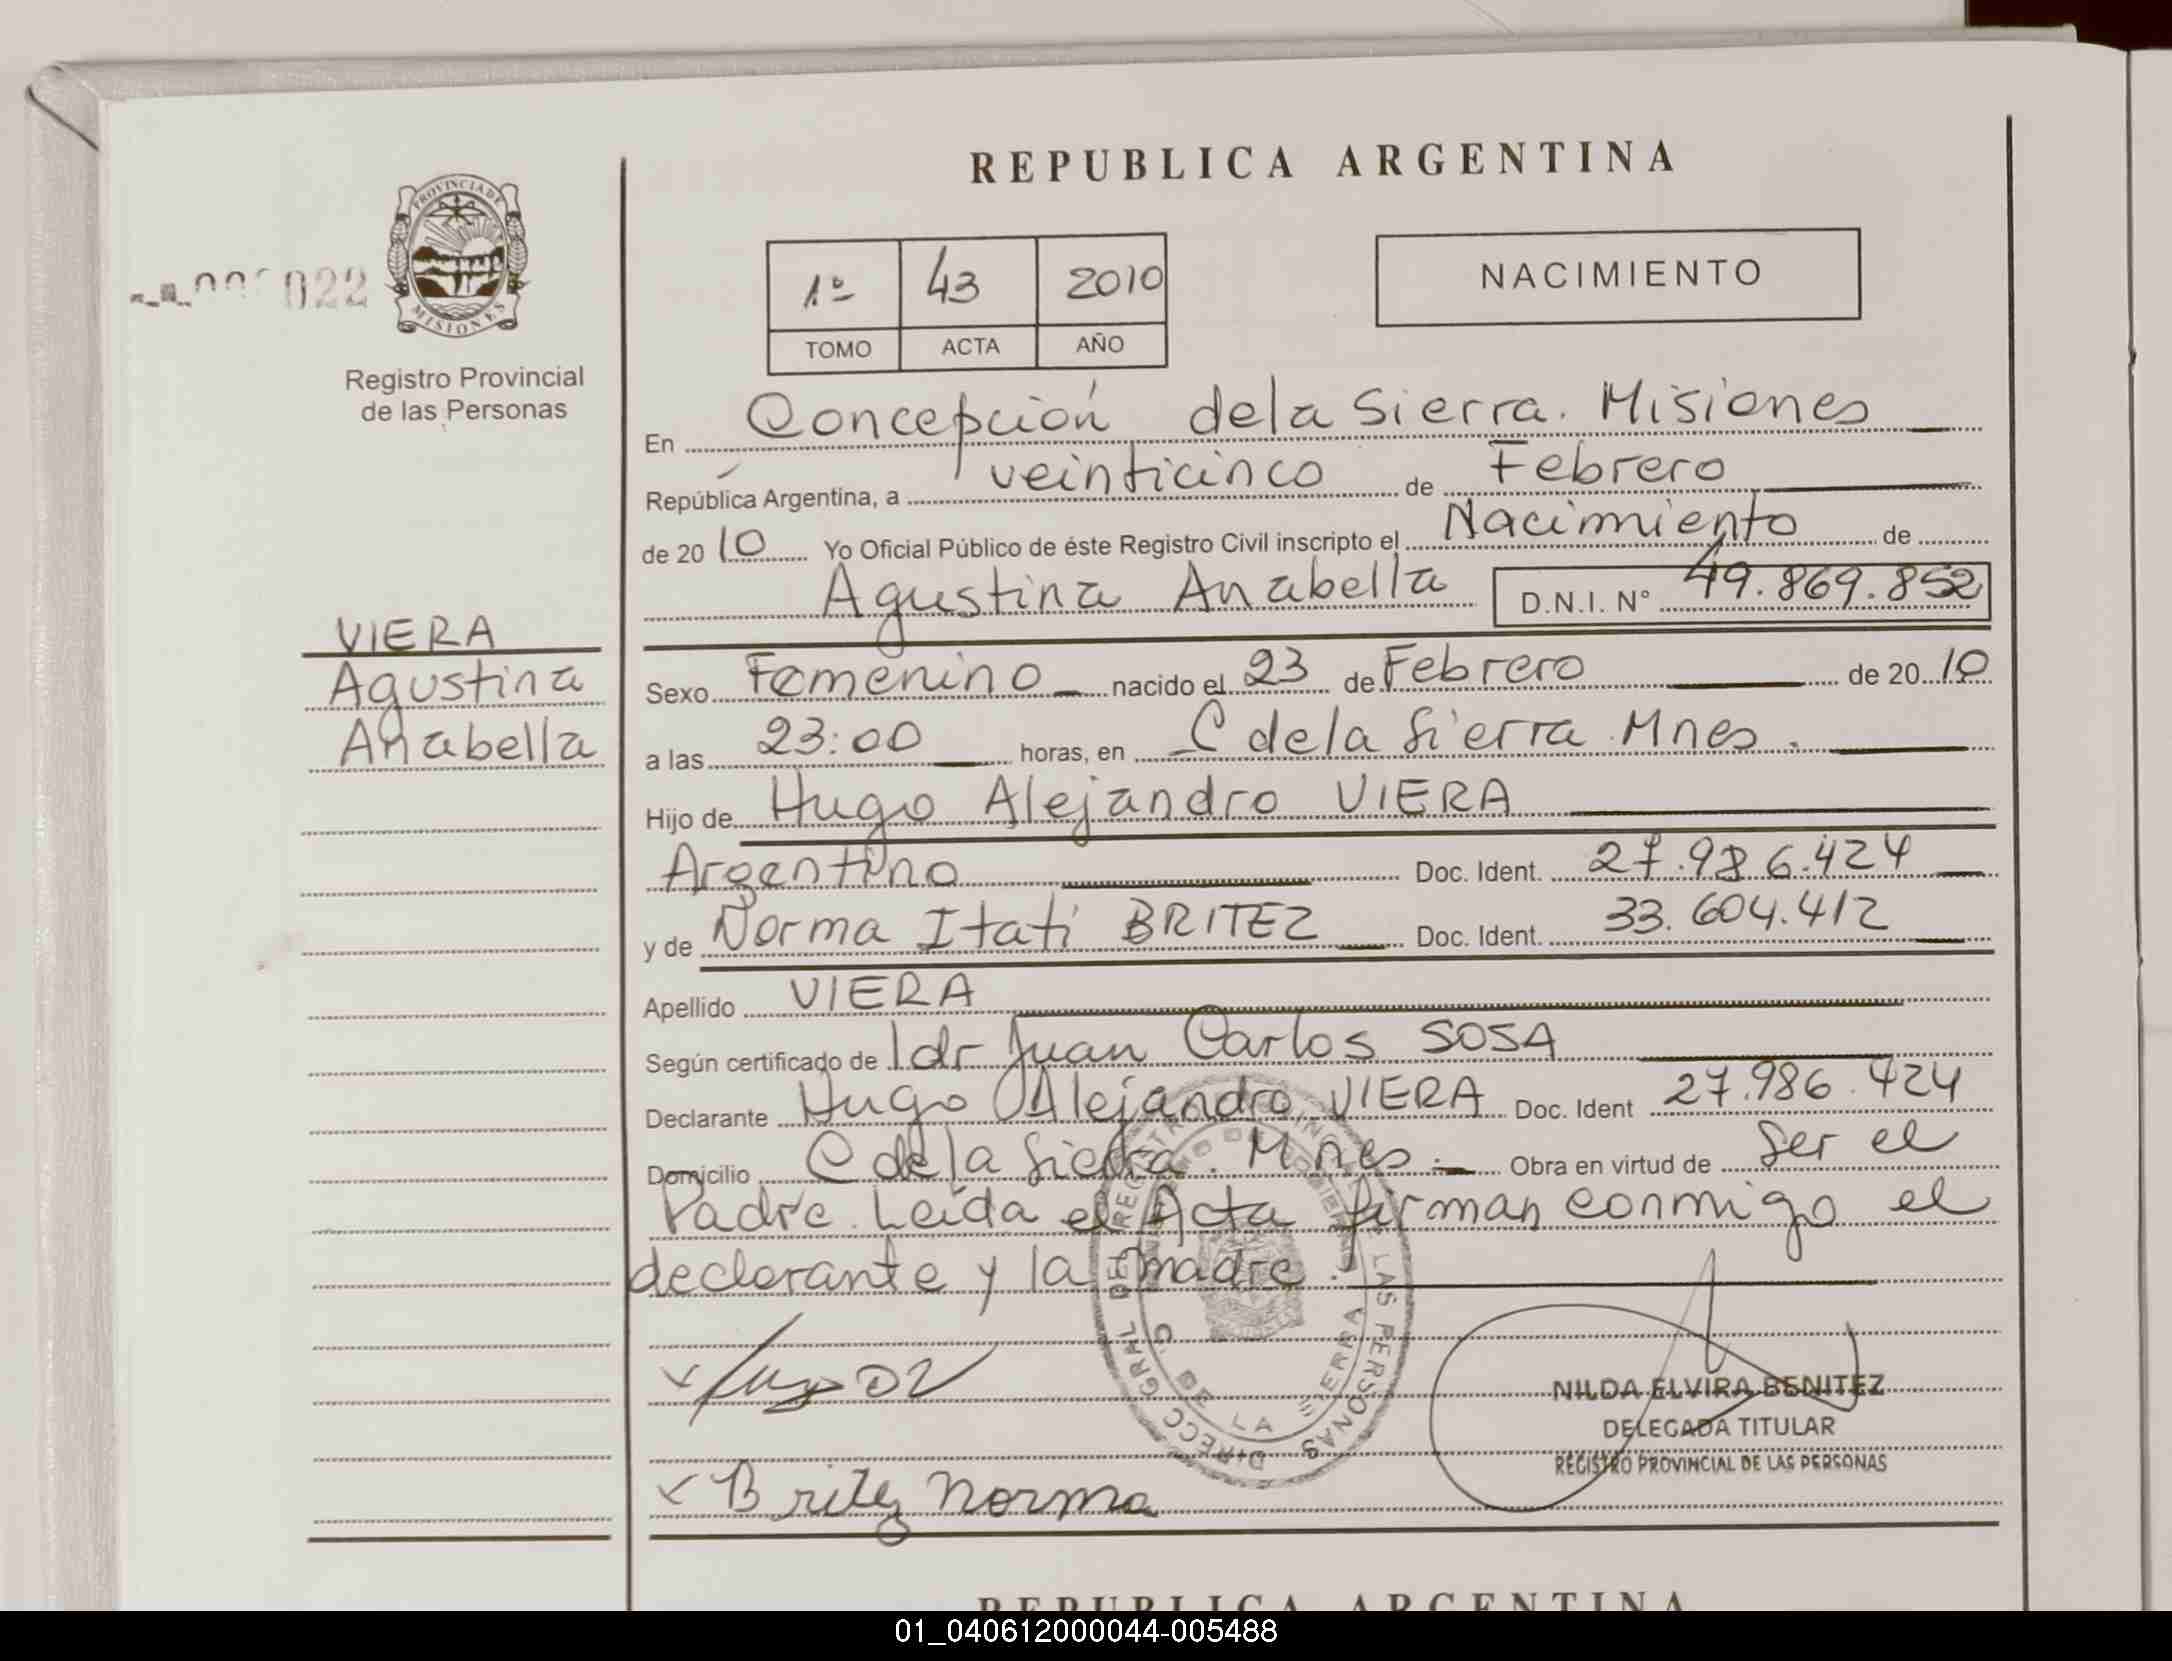 REPUBLICA ARGENTINA
PROVINCIA DE
MISIONES
022
Registro Provincial
de las Personas
1º 43 2010
TOMO ACTA AÑO
NACIMIENTO
En Concepción de la Sierra. Misiones
República Argentina, a veinticinco de Febrero
de 2010 Yo Oficial Público de éste Registro Civil inscripto el Nacimiento de
Agustina Anabella D.N.I. Nº 49.869.852
VIERA
Agustina
Anabella
Sexo Femenino nacido el 23 de Febrero de 2010
a las 23:00 horas, en C de la Sierra Mnes.
Hijo de Hugo Alejandro VIERA
Argentino Doc. Ident. 27.986.424
y de Norma Itatí BRITEZ Doc. Ident. 33.604.412
Apellido VIERA
Según certificado de 1dr Juan Carlos SOSA
Declarante Hugo Alejandro VIERA Doc. Ident 27.986.424
Domicilio C de la Sierra. Mnes. Obra en virtud de Ser el
Padre. Leída el Acta firman conmigo el
declarante y la madre.
DIRECC GRAL DEL REGISTRO PROVINCIAL DE LAS PERSONAS
C. DE LA SIERRA
NILDA ELVIRA BENITEZ
DELEGADA TITULAR
REGISTRO PROVINCIAL DE LAS PERSONAS
x Britez Norma
REPUBLICA ARGENTINA
01_040612000044-005488